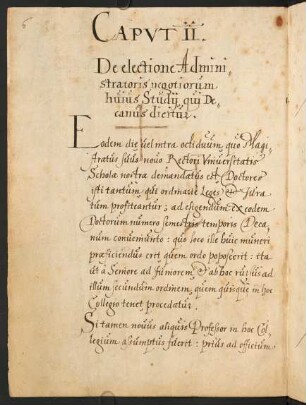 CAPVT II.
De electione Admini
stratoris negotiorum
huius Studij, qui De
canus dicitur.
Eodem die vel intra octiduum, quo Magi
stratus sibus nouo Rectori Vniuersitatis
Schola nostra demandatus et Doctores
isti tantum, qui ordinariè Leges
tium profiteantur; ad eligendum ex eodem
Doctorum numero semestris temporis Deca,
num conueniunto: quo loco ille huic muneri
praeficiendus erit quem ordo poposcerit: ita
ut à Seniore ad Juniorem, & ab hoc rursus ad
illum secundum ordinem, quem quisque in hoc
Collegio tenet procedatur.
Si tamen nouus aliquis Professor in hoc Col,
legium assumptus fuerit: prius ad officium